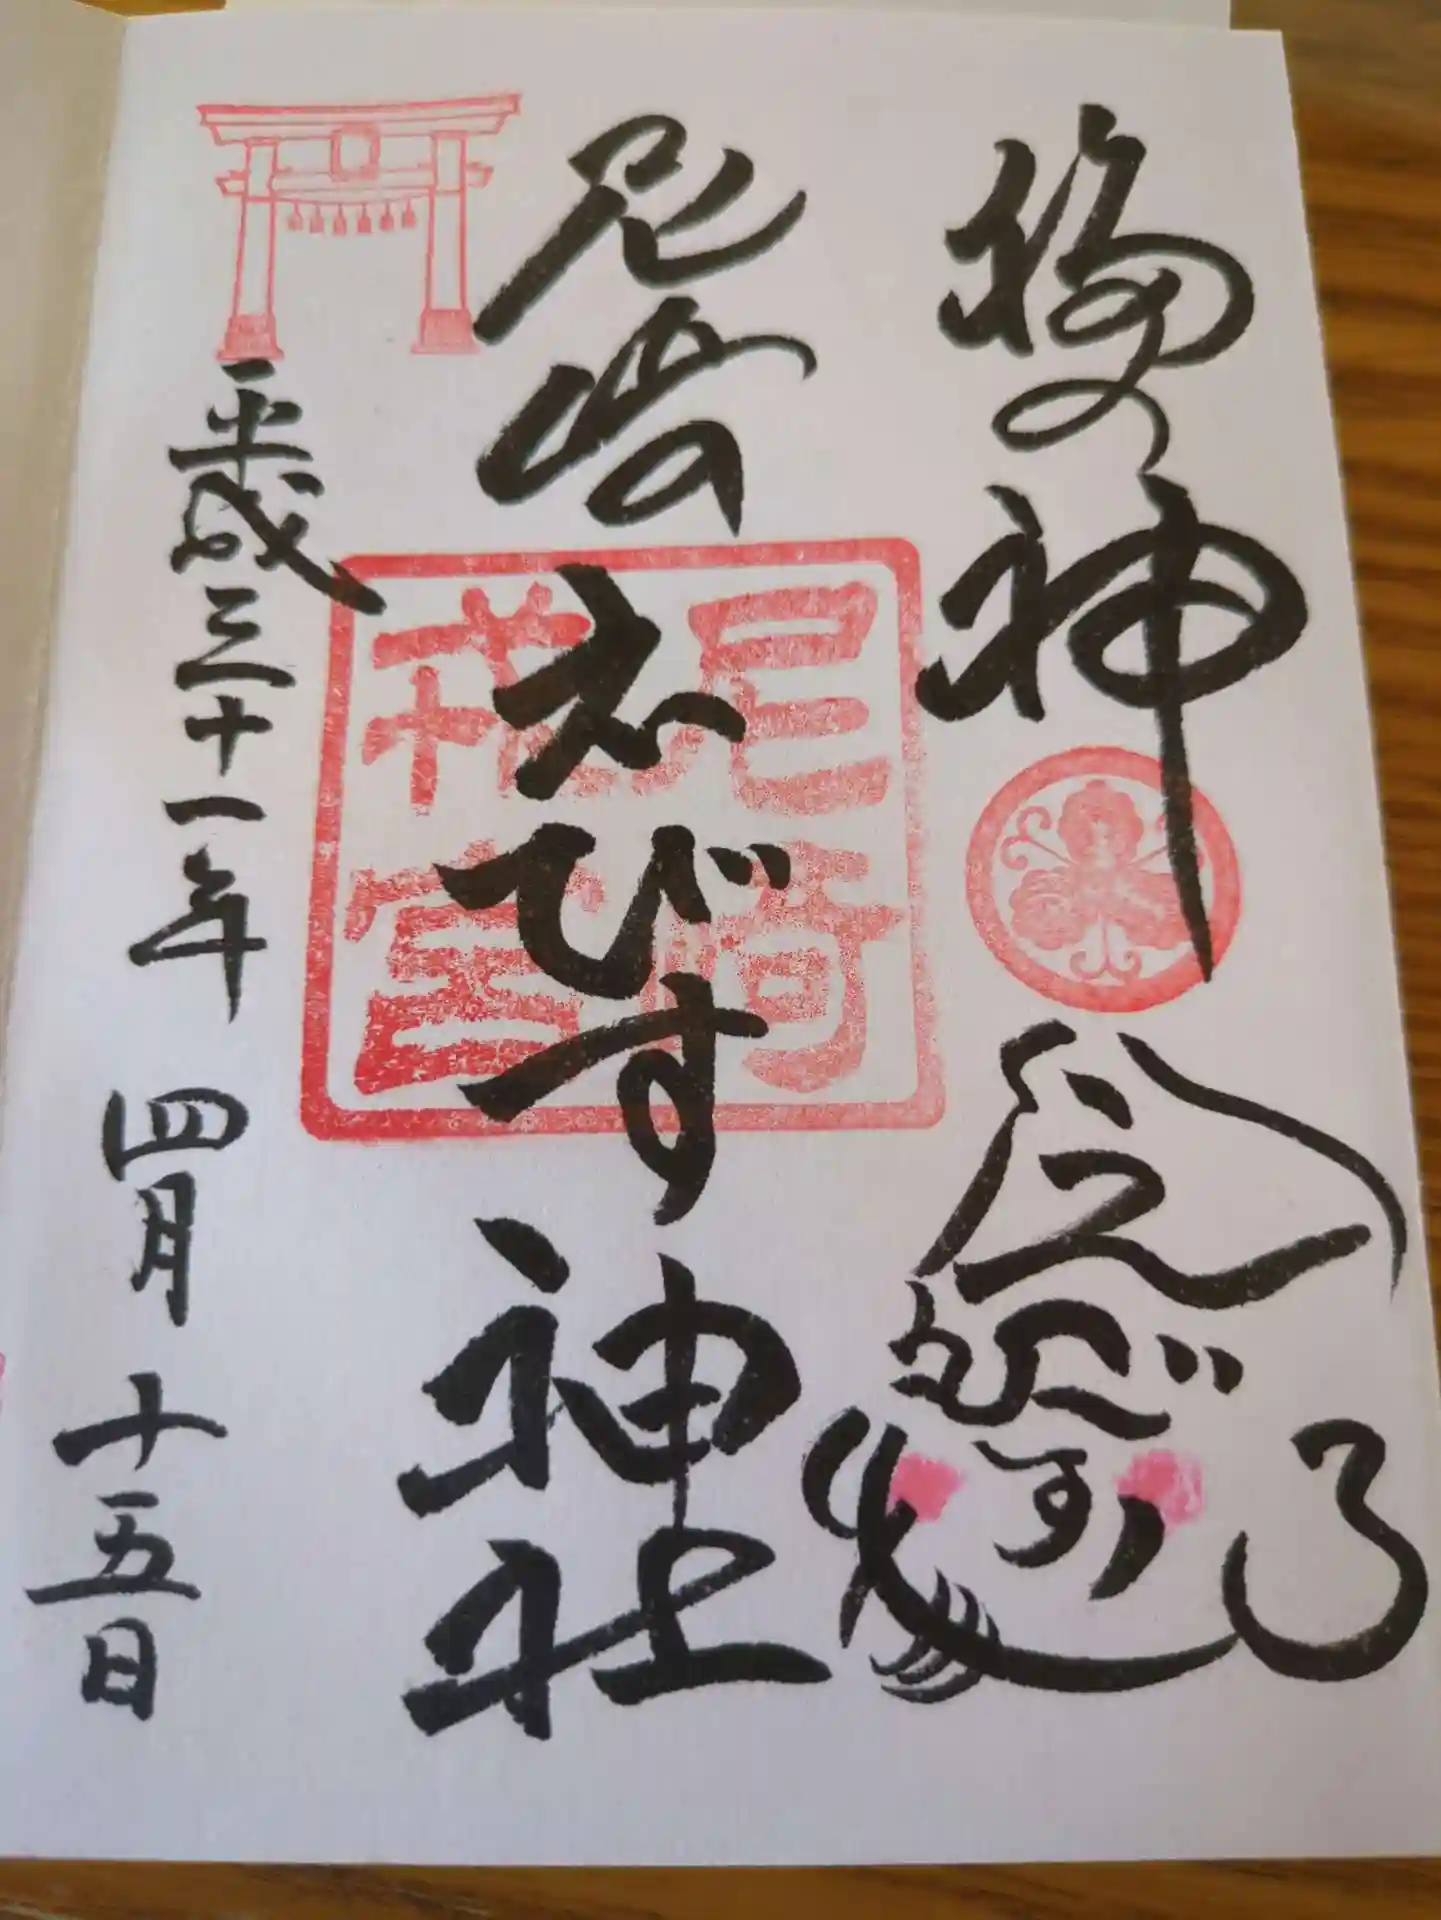 福の神
えびす
尼崎えびす神社
尼崎
戎宮
平成三十一年 四月 十五日